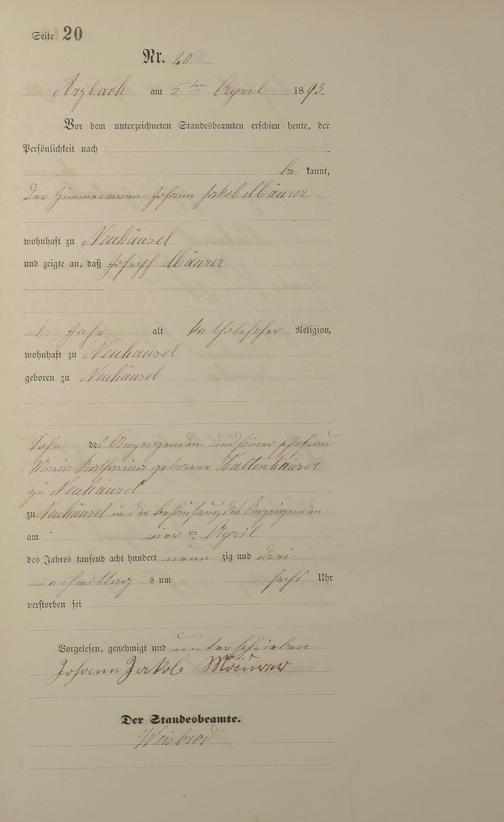 Seite 20
Nr. 20
Arzbach am 5ten April 1893.
Vor dem unterzeichneten Standesbeamten erschien heute, der
Persönlichkeit nach
be kannt,
der Zimmermann Johann Jakob Mäurer
wohnhaft zu Neuhäusel
und zeigte an, daß Joseph Mäurer
1 Jahr alt katholischer Religion,
wohnhaft zu Neuhäusel
geboren zu Neuhäusel
Sohn des Anzeigenden und seiner Ehefrau
Maria Katharina geborene Kaltenhäuser
zu Neuhäusel
zu Neuhäusel in der Behausung des Anzeigenden
am vier ten April
des Jahres tausend acht hundert neun zig und drei
nachmittag s um sechs Uhr
verstorben sei
Vorgelesen, genehmigt und unterschrieben
Johann Jakob Mäurer
Der Standesbeamte.
Weisbrod